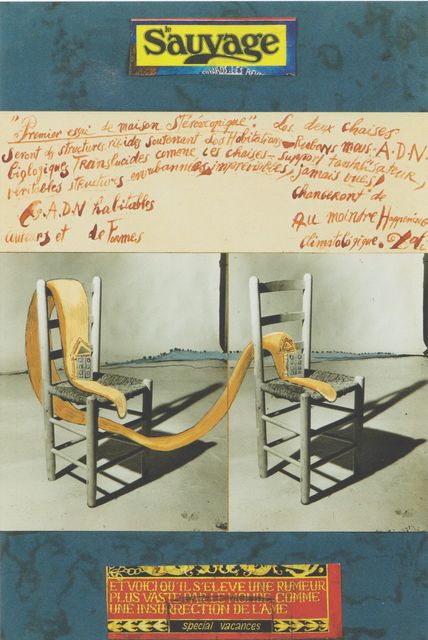 le
Sauvage
"Premier essai de maison Stéréoscopique". Les deux chaises
seront des structures rigides soutenant des Habitations-Rubans mous-A.D.N-
biologiques Translucides comme ces chaises-support fantaisateur,
véritables structures enrubannées, imprévisibles, jamais vues,
Les A.D.N habitables changeront de
couleurs et de Formes au moindre Happening
climatologique.
ET VOICI QU'IL S'ELEVE UNE RUMEUR
PLUS VASTE PAR LE MONDE COMME
UNE INSURRECTION DE L'AME
special vacances